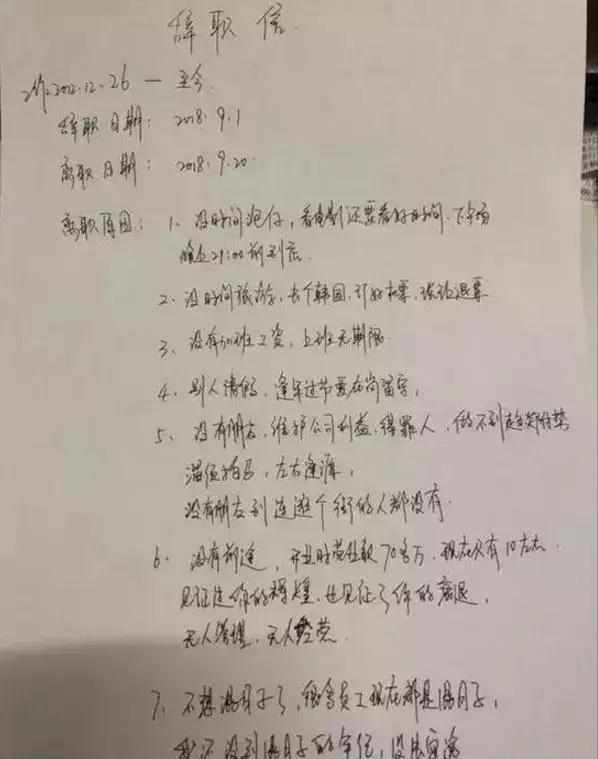 辞职信
2012.12.26 — 至今
辞职日期：2018.9.1
离职日期：2018.9.20.
离职原因：1、没时间泡仔，看电影还要看好时间，下午场
晚上21:00前到店.
2、没时间旅游，去个韩国，订好机票，被迫退票
3、没有加班工资，上班无期限
4、别人请假，逢年过节要在岗留守，
5、没有朋友，维护公司利益，得罪人，做不到趋炎附势
溜须拍马，左右逢源，
没有朋友到连逛个街的人都没有.
6、没有前途，开业时营业额70多万，现在只有10左右.
见证过你的辉煌，也见证了你的衰退，
无人管理，无人经营.
7、不想混日子了，很多员工现在都是混日子，
我还没到混日子的年纪，没法